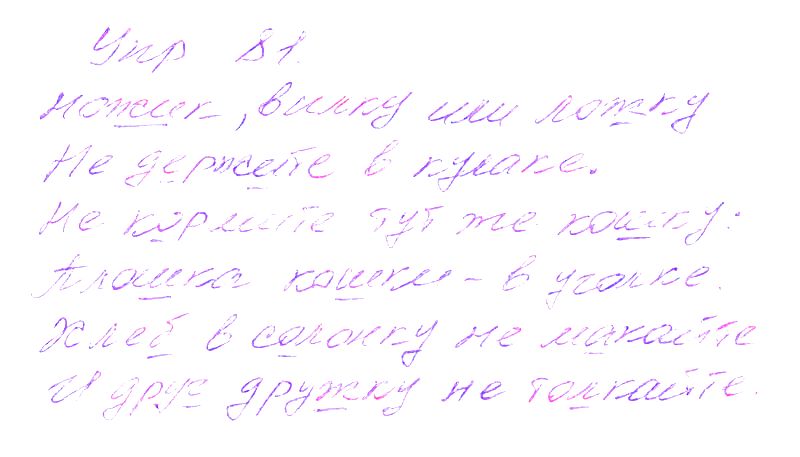 Упр 81.
Ножик, вилку или ложку
Не держите в кулаке.
Не кормите тут же кошку:
Плошка кошки - в уголке.
Хлеб в солонку не макайте
И друг дружку не толкайте.